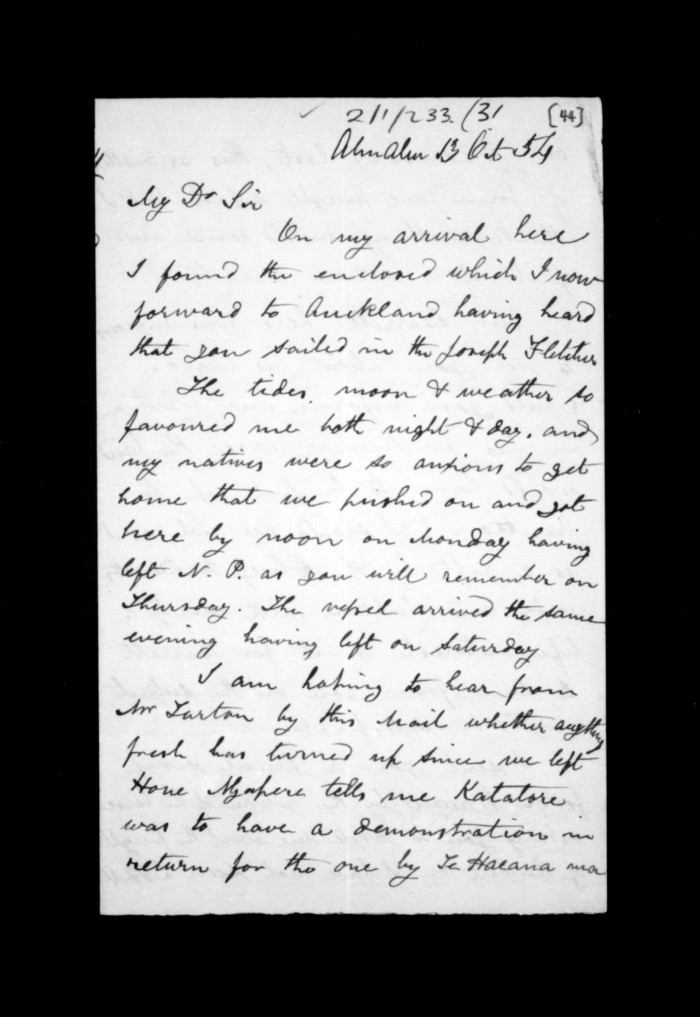 2/1/233. (31 [44]
Ahuahu 13 Oct 54
My Dr Sir
On my arrival here
I found the enclosed which I now
forward to Auckland having heard
that you sailed in the Joseph Fletcher
The tides, moon & weather so
favoured me both night & day, and
my natives were so anxious to get
home that we pushed on and got
here by noon on Monday having
left N. P. as you will remember on
Thursday. The vessel arrived the same
evening having left on Saturday
I am hoping to hear from
Mr Turton by this Mail whether anything
fresh has turned up since we left
Hone Ngapere tells me Katatore
was to have a demonstration in
return for the one by Te